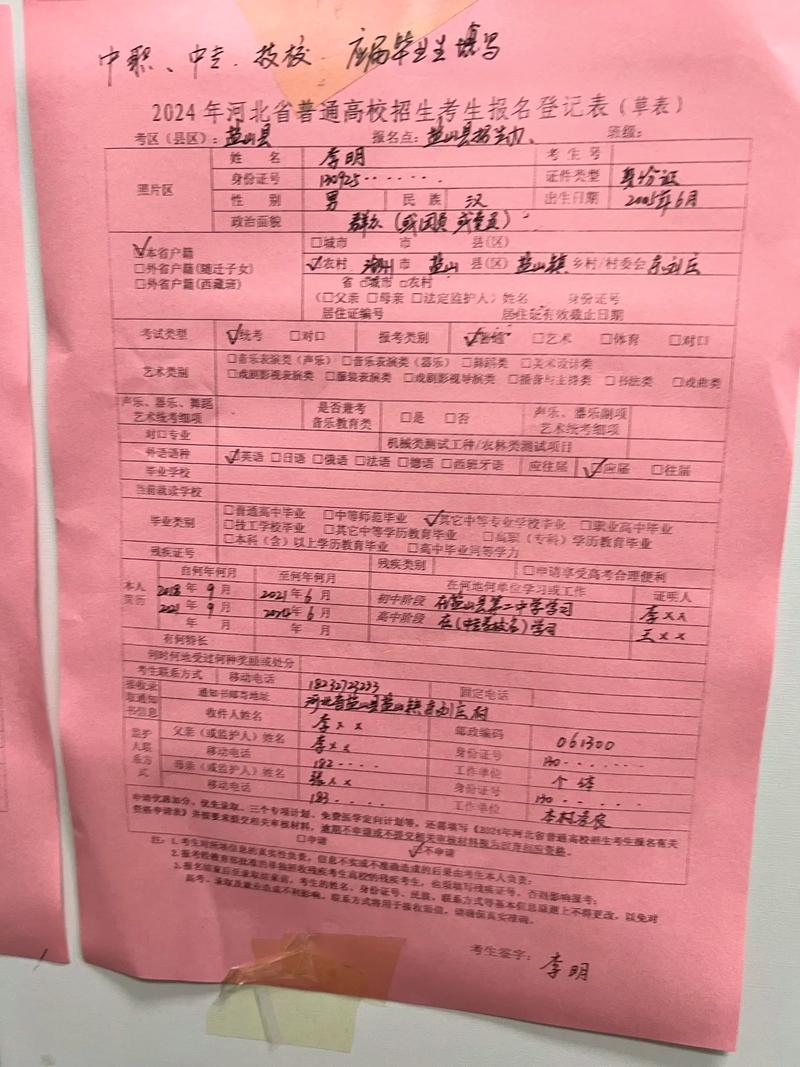 中职、中专、技校 应届毕业生填写
2024年河北省普通高校招生考生报名登记表（草表）
考区（县区）：盐山县 报名点：盐山县招生办、 班级：
照片区
姓 名 李明 考 生 号
身份证号 130925········ 证件类型 身份证
性 别 男 民 族 汉 出生日期 2005年6月
政治面貌 群众（或团员 或党员）
☑本省户籍
□外省户籍（随迁子女）
□外省户籍（西藏班）
□城市 市 县（区）
☑农村 沧州 市 盐山 县（区） 盐山镇 乡村/村委会 东刘庄
省 □城市 □农村
（□父亲 □母亲 □法定监护人）姓名 身份证号
居住证编号 居住证有效截止日期
考试类型 ☑统考 □对口 报考类别 ☑普通 □艺术 □体育 □对口
艺术类别
□音乐表演类（声乐） □音乐表演类（器乐） □舞蹈类 □美术设计类
□戏剧影视表演类 □服装表演类 □戏剧影视导演类 □播音与主持类 □书法类 □戏曲类
声乐、器乐、舞蹈
艺术统考细项
是否兼考
音乐教育类
□是 □否
声乐、器乐副项
艺术统考细项
对口专业 机械类测试工种/农林类测试项目
外语语种 ☑英语 □日语 □俄语 □法语 □德语 □西班牙语 应往届 ☑应届 □往届
毕业学校
当前就读学校
毕业类别
□普通高中毕业 □中等师范毕业 ☑其它中等专业学校毕业 □职业高中毕业
□技工学校毕业 □其它中等学历教育毕业 □高职（专科）学历教育毕业
□本科（含）以上学历教育毕业 □高中毕业同等学力
残疾证号 残疾类别 □申请享受高考合理便利
本人
简历
自何年何月 至何年何月 在何地何单位学习或工作 证明人
2018 年 9 月 2021 年 6 月 初中阶段 在盐山县第二中学学习 李××
2021 年 9 月 2024 年 6 月 高中阶段 在（中专学校名）学习 王××
年 月 年 月
有何特长
何时何地受过何种奖励或处分
考生联系方式 移动电话 18232723233 固定电话
接收录
取通知
书信息
通知书邮寄地址 河北省盐山县盐山镇东刘庄村
收件人姓名 李×× 邮政编码 061300
监护
人联
系方
式
父亲（或监护人）姓名 李×× 身份证号 130·····
移动电话 182····· 工作单位 个体
母亲（或监护人）姓名 张×× 身份证号 130·····
移动电话 183····· 工作单位 本村务农
申请优惠加分、优先录取、三个专项计划、免费医学定向计划等，还需填写《2024年河北省普通高校招生考生报名有关
资格申请表》并按要求提交相关审核材料，逾期不申请或不提交相关审核材料视为放弃相应资格。
□申请 ☑不申请
注：1.考生对所填信息的真实性负责，信息不实或不准确造成的后果由考生本人负责；
2.报考经教育部批准的单独招收残疾考生高校的残疾考生，也须填写残疾证号，否则影响报考；
3.报名结束后至录取结束前，考生的姓名、身份证号、民族、联系方式等基本信息原则上不得更改，以免对
高考、录取及就业造成不利影响。联系方式将用于接收短信，请确保真实准确。
考生签字：李明